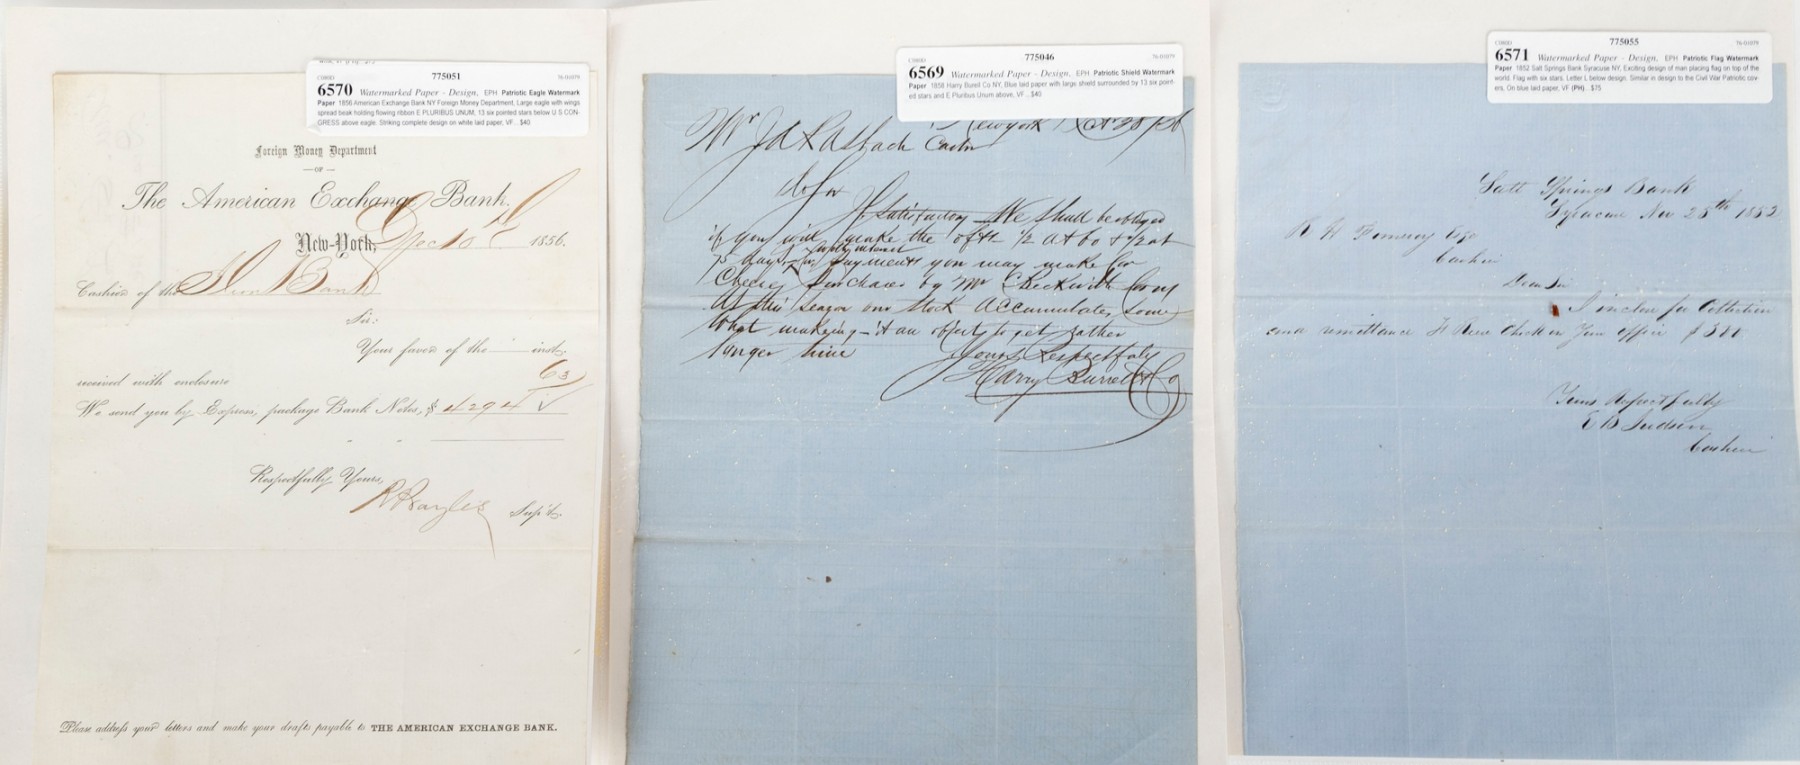 775051
C080D
76-01079
6570 Watermarked Paper - Design, EPH Patriotic Eagle Watermark
Paper 1856 American Exchange Bank NY Foreign Money Department, Large eagle with wings
spread beak holding flowing ribbon E PLURIBUS UNUM, 13 six pointed stars below U S CON-
GRESS above eagle. Striking complete design on white laid paper, VF...$40
Foreign Money Department
— OF —
The American Exchange Bank.
New-York, Dec 10 1856.
Cashier of the Bank
Sir:
Your favor of the inst.
received with enclosure
63
We send you by Express, package Bank Notes, $ 4294
Respectfully Yours,
Sup't.
Please address your letters and make your drafts payable to THE AMERICAN EXCHANGE BANK.
775046
C080D
76-01079
6569 Watermarked Paper - Design, EPH Patriotic Shield Watermark
Paper 1858 Harry Burrell Co NY, Blue laid paper with large shield surrounded by 13 six point-
ed stars and E Pluribus Unum above, VF...$40
New york
Mr J A Rasbach Cashr
If Satisfactory We Shall be obliged
if you will make the of the 1/2 at 60 + 1/2 at
75 days payments you may make for
Cheese purchases by Mr C Beckwith for us
At this season our Stock Accumulates Some
What making it an object to get rather
longer time
Yours Respectfully
Harry Burrell & Co
775055
C080D
76-01079
6571 Watermarked Paper - Design, EPH Patriotic Flag Watermark
Paper 1852 Salt Springs Bank Syracuse NY, Exciting design of man placing flag on top of the
world. Flag with six stars. Letter L below design. Similar in design to the Civil War Patriotic cov-
ers, On blue laid paper, VF (PH)...$75
Salt Springs Bank
Syracuse Nov 25th 1852
R H Pomeroy Esq
Cashier
Dear Sir
I inclose for Collection
and remittance
Yours Respectfully
E B Judson
Cashier